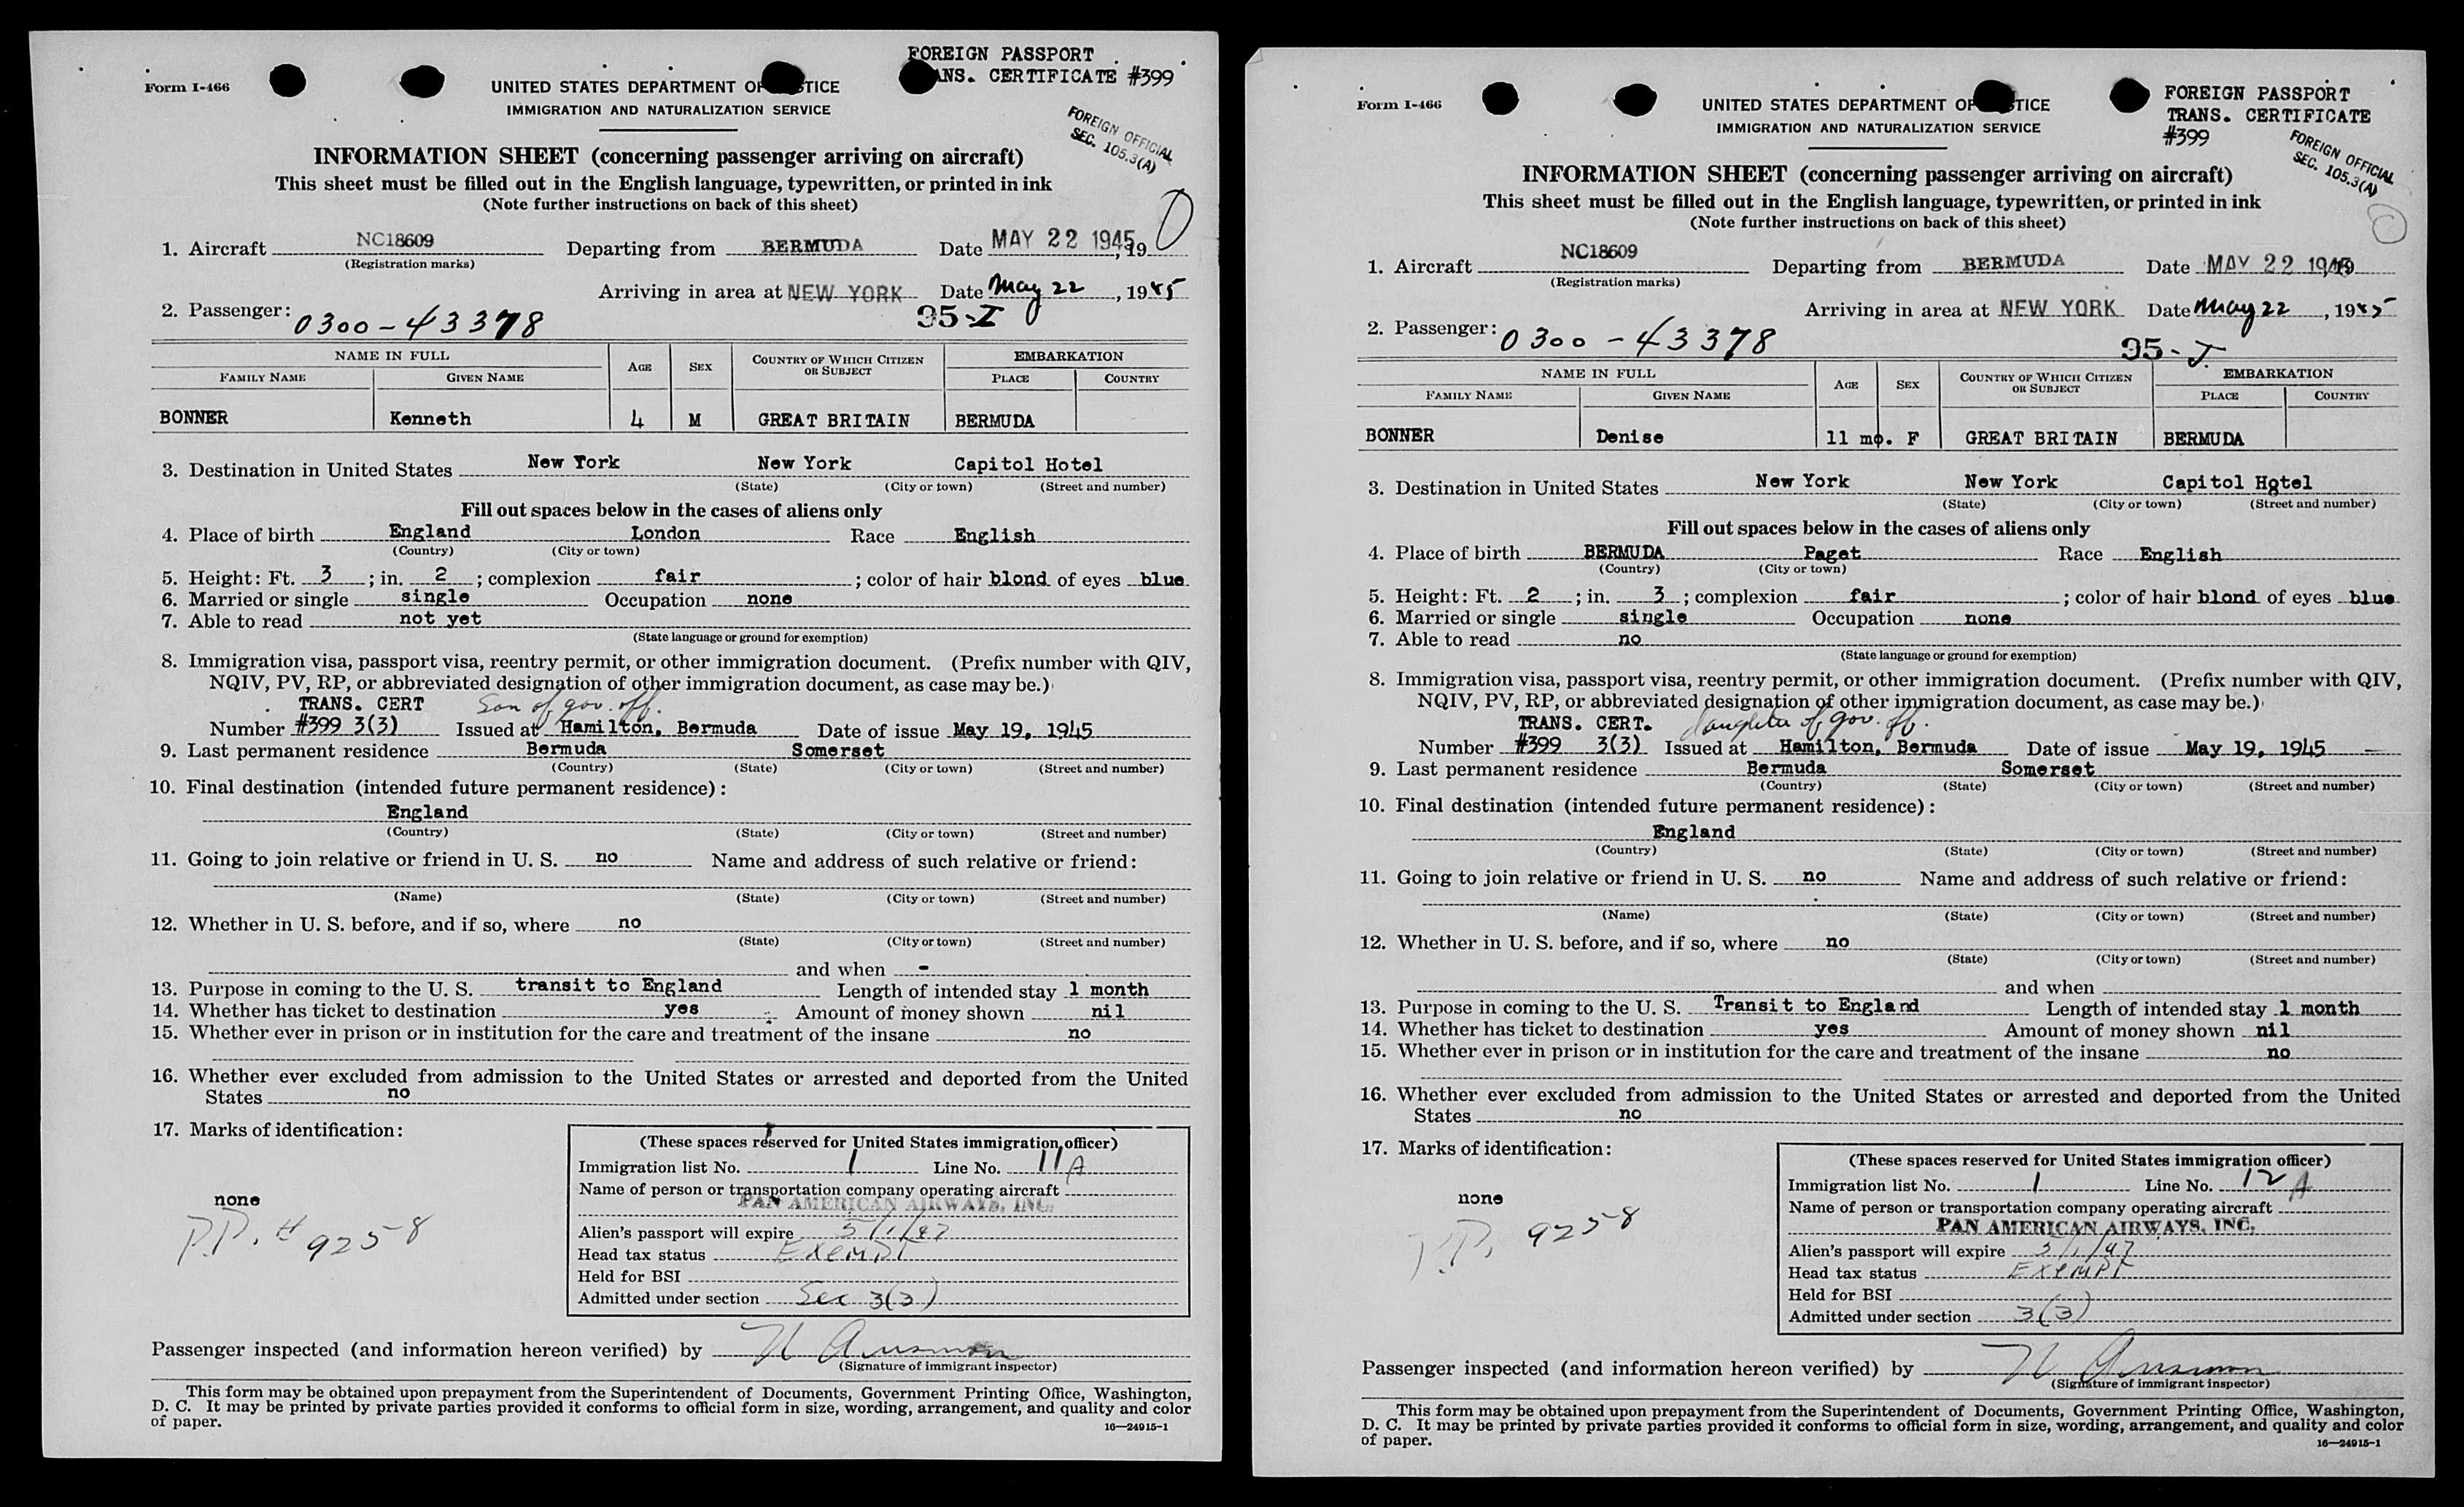 FOREIGN PASSPORT
ANS. CERTIFICATE #399
Form I-466
UNITED STATES DEPARTMENT OF TICE
IMMIGRATION AND NATURALIZATION SERVICE
FOREIGN OFFICIAL
SEC. 105.3(A)
INFORMATION SHEET (concerning passenger arriving on aircraft)
This sheet must be filled out in the English language, typewritten, or printed in ink
(Note further instructions on back of this sheet)
1. Aircraft NC18609 Departing from BERMUDA Date MAY 22 1945, 19
(Registration marks)
Arriving in area at NEW YORK Date May 22, 1945
2. Passenger: 0300-43378 95-I
NAME IN FULL AGE SEX COUNTRY OF WHICH CITIZEN OR SUBJECT EMBARKATION
FAMILY NAME GIVEN NAME PLACE COUNTRY
BONNER Kenneth 4 M GREAT BRITAIN BERMUDA
3. Destination in United States New York New York Capitol Hotel
(State) (City or town) (Street and number)
Fill out spaces below in the cases of aliens only
4. Place of birth England London Race English
(Country) (City or town)
5. Height: Ft. 3; in. 2; complexion fair; color of hair blond of eyes blue
6. Married or single single Occupation none
7. Able to read not yet
(State language or ground for exemption)
8. Immigration visa, passport visa, reentry permit, or other immigration document. (Prefix number with QIV,
NQIV, PV, RP, or abbreviated designation of other immigration document, as case may be.)
TRANS. CERT Son of gov. off.
Number #399 3(3) Issued at Hamilton, Bermuda Date of issue May 19, 1945
9. Last permanent residence Bermuda Somerset
(Country) (State) (City or town) (Street and number)
10. Final destination (intended future permanent residence):
England
(Country) (State) (City or town) (Street and number)
11. Going to join relative or friend in U. S. no Name and address of such relative or friend:
(Name) (State) (City or town) (Street and number)
12. Whether in U. S. before, and if so, where no
(State) (City or town) (Street and number)
and when -
13. Purpose in coming to the U. S. transit to England Length of intended stay 1 month
14. Whether has ticket to destination yes Amount of money shown nil
15. Whether ever in prison or in institution for the care and treatment of the insane no
16. Whether ever excluded from admission to the United States or arrested and deported from the United
States no
17. Marks of identification:
none
P.P. # 9258
(These spaces reserved for United States immigration officer)
Immigration list No. 1 Line No. 11 A
Name of person or transportation company operating aircraft
PAN AMERICAN AIRWAYS, INC.
Alien's passport will expire 5/1/47
Head tax status Exempt
Held for BSI
Admitted under section Sec 3(3)
Passenger inspected (and information hereon verified) by
(Signature of immigrant inspector)
This form may be obtained upon prepayment from the Superintendent of Documents, Government Printing Office, Washington,
D. C. It may be printed by private parties provided it conforms to official form in size, wording, arrangement, and quality and color
of paper.
16—24915-1
FOREIGN PASSPORT
TRANS. CERTIFICATE
#399
Form I-466
UNITED STATES DEPARTMENT OF TICE
IMMIGRATION AND NATURALIZATION SERVICE
FOREIGN OFFICIAL
SEC. 105.3(A)
INFORMATION SHEET (concerning passenger arriving on aircraft)
This sheet must be filled out in the English language, typewritten, or printed in ink
(Note further instructions on back of this sheet)
1. Aircraft NC18609 Departing from BERMUDA Date MAY 22 1945
(Registration marks)
Arriving in area at NEW YORK Date May 22, 1945
2. Passenger: 0300-43378 95-J
NAME IN FULL AGE SEX COUNTRY OF WHICH CITIZEN OR SUBJECT EMBARKATION
FAMILY NAME GIVEN NAME PLACE COUNTRY
BONNER Denise 11 mo. F GREAT BRITAIN BERMUDA
3. Destination in United States New York New York Capitol Hotel
(State) (City or town) (Street and number)
Fill out spaces below in the cases of aliens only
4. Place of birth BERMUDA Paget Race English
(Country) (City or town)
5. Height: Ft. 2; in. 3; complexion fair; color of hair blond of eyes blue
6. Married or single single Occupation none
7. Able to read no
(State language or ground for exemption)
8. Immigration visa, passport visa, reentry permit, or other immigration document. (Prefix number with QIV,
NQIV, PV, RP, or abbreviated designation of other immigration document, as case may be.)
TRANS. CERT. daughter of gov. off.
Number #399 3(3) Issued at Hamilton, Bermuda Date of issue May 19, 1945
9. Last permanent residence Bermuda Somerset
(Country) (State) (City or town) (Street and number)
10. Final destination (intended future permanent residence):
England
(Country) (State) (City or town) (Street and number)
11. Going to join relative or friend in U. S. no Name and address of such relative or friend:
(Name) (State) (City or town) (Street and number)
12. Whether in U. S. before, and if so, where no
(State) (City or town) (Street and number)
and when
13. Purpose in coming to the U. S. Transit to England Length of intended stay 1 month
14. Whether has ticket to destination yes Amount of money shown nil
15. Whether ever in prison or in institution for the care and treatment of the insane no
16. Whether ever excluded from admission to the United States or arrested and deported from the United
States no
17. Marks of identification:
none
P.P. 9258
(These spaces reserved for United States immigration officer)
Immigration list No. 1 Line No. 12 A
Name of person or transportation company operating aircraft
PAN AMERICAN AIRWAYS, INC.
Alien's passport will expire 5/1/47
Head tax status Exempt
Held for BSI
Admitted under section 3(3)
Passenger inspected (and information hereon verified) by
(Signature of immigrant inspector)
This form may be obtained upon prepayment from the Superintendent of Documents, Government Printing Office, Washington,
D. C. It may be printed by private parties provided it conforms to official form in size, wording, arrangement, and quality and color
of paper.
16—24915-1